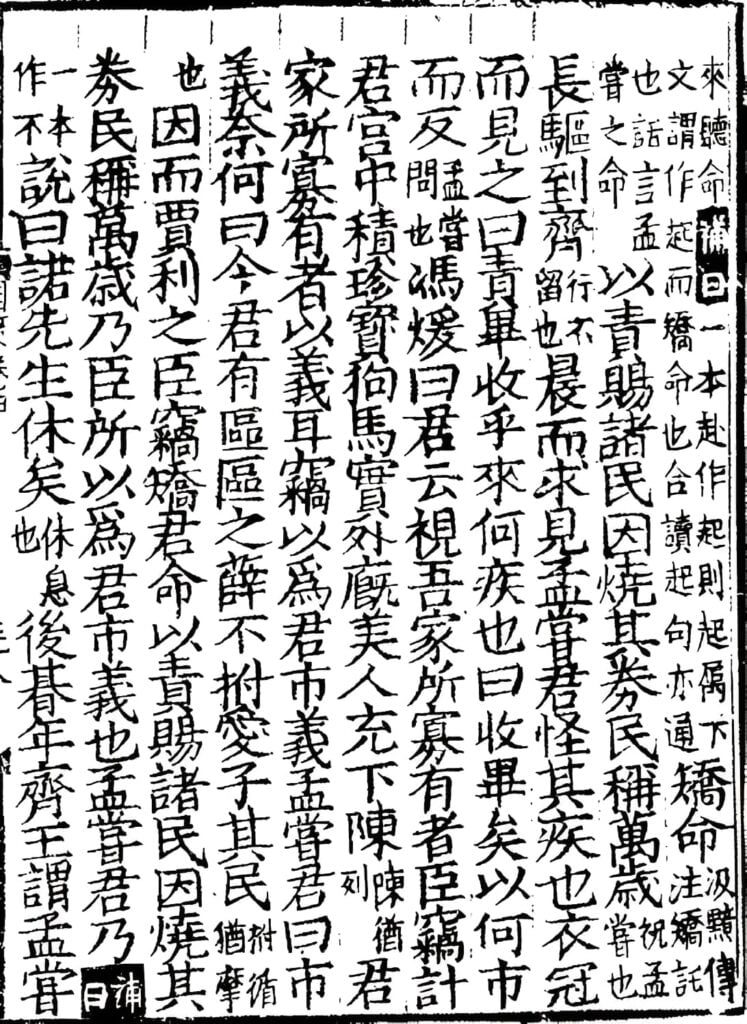 來聽命補曰一本赴作起則起屬下文謂作起而矯命也合讀起句亦通矯命汲黯傳注矯託
也話言孟嘗之命以責賜諸民因燒其券民稱萬歲祝孟嘗也
長驅到齊行不留也晨而求見孟嘗君怪其疾也衣冠
而見之曰責畢收乎來何疾也曰收畢矣以何市
而反孟嘗問也馮煖曰君云視吾家所寡有者臣竊計
君宮中積珍寶狗馬實外廐美人充下陳陳猶列君
家所寡有者以義耳竊以爲君市義孟嘗君曰市
義奈何曰今君有區區之薛不拊愛子其民拊循猶摩
也因而賈利之臣竊矯君命以責賜諸民因燒其
券民稱萬歲乃臣所以爲君市義也孟嘗君乃補曰
一本作不說曰諾先生休矣休息也後朞年齊王謂孟嘗